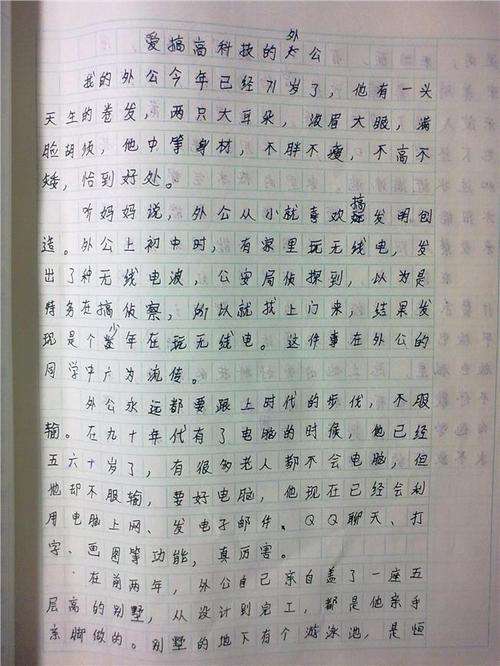 爱搞高科技的外公
我的外公今年已经71岁了，他有一头
天生的卷发，两只大耳朵，浓眉大眼，满
脸胡须，他中等身材，不胖不瘦，不高不
矮，恰到好处。
听妈妈说，外公从小就喜欢搞发明创
造。外公上初中时，有家里玩无线电，发
出了种无线电波，公安局侦探到，以为是
特务在搞侦察，所以就找上门来，结果发
现是个少年在玩无线电。这件事在外公的
同学中广为流传。
外公永远都要跟上时代的步伐，不服
输。在九十年代有了电脑的时候，他已经
五六十岁了，有很多老人都不会电脑，但
他却不服输，要好电脑，他现在已经会利
用电脑上网、发电子邮件、QQ聊天、打
字、画图等功能，真厉害。
在前两年，外公自己亲自盖了一座五
层高的别墅，从设计到完工，都是他亲手
亲脚做的。别墅的地下有个游泳池，是恒